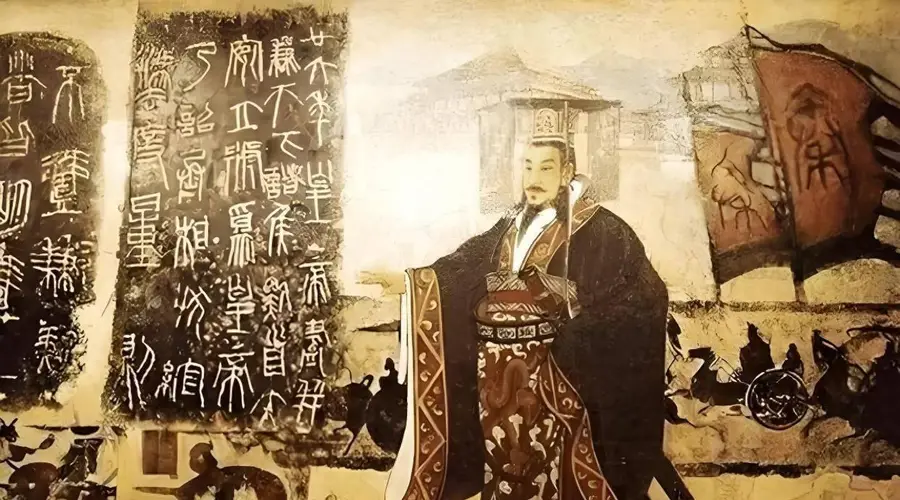 廿六年皇帝盡并
兼天下諸侯黔首大
安立號為皇帝
乃詔丞相狀綰
灋度量則
不壹歉疑
者皆明壹
秦
秦